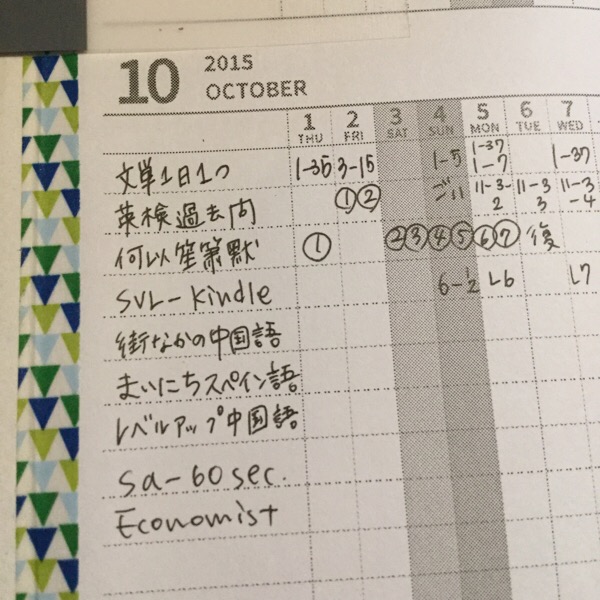 10 2015
OCTOBER
1 2 3 4 5 6 7
THU FRI SAT SUN MON TUE WED
文単1日1つ 1-35 3-15 1-5 1-37 1-7 1-37
英検過去問 ①② 11-3-2 11-3 3 11-3-4
何以笙簫默 ① ②③④⑤⑥⑦ 復
SVL-Kindle 6-1/2 L6 L7
街なかの中国語
まいにちスペイン語
レベルアップ中国語
Sa-60sec.
Economist